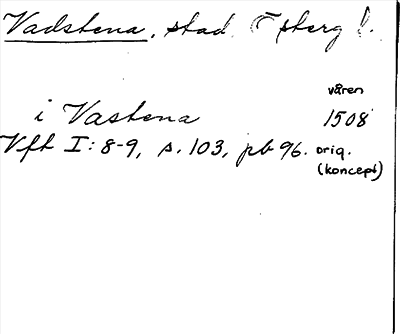 Vadstena, stad, Östberg l.
våren
i Vastena 1508
Vft I: 8-9, s. 103, pb 96. orig.
(koncept)